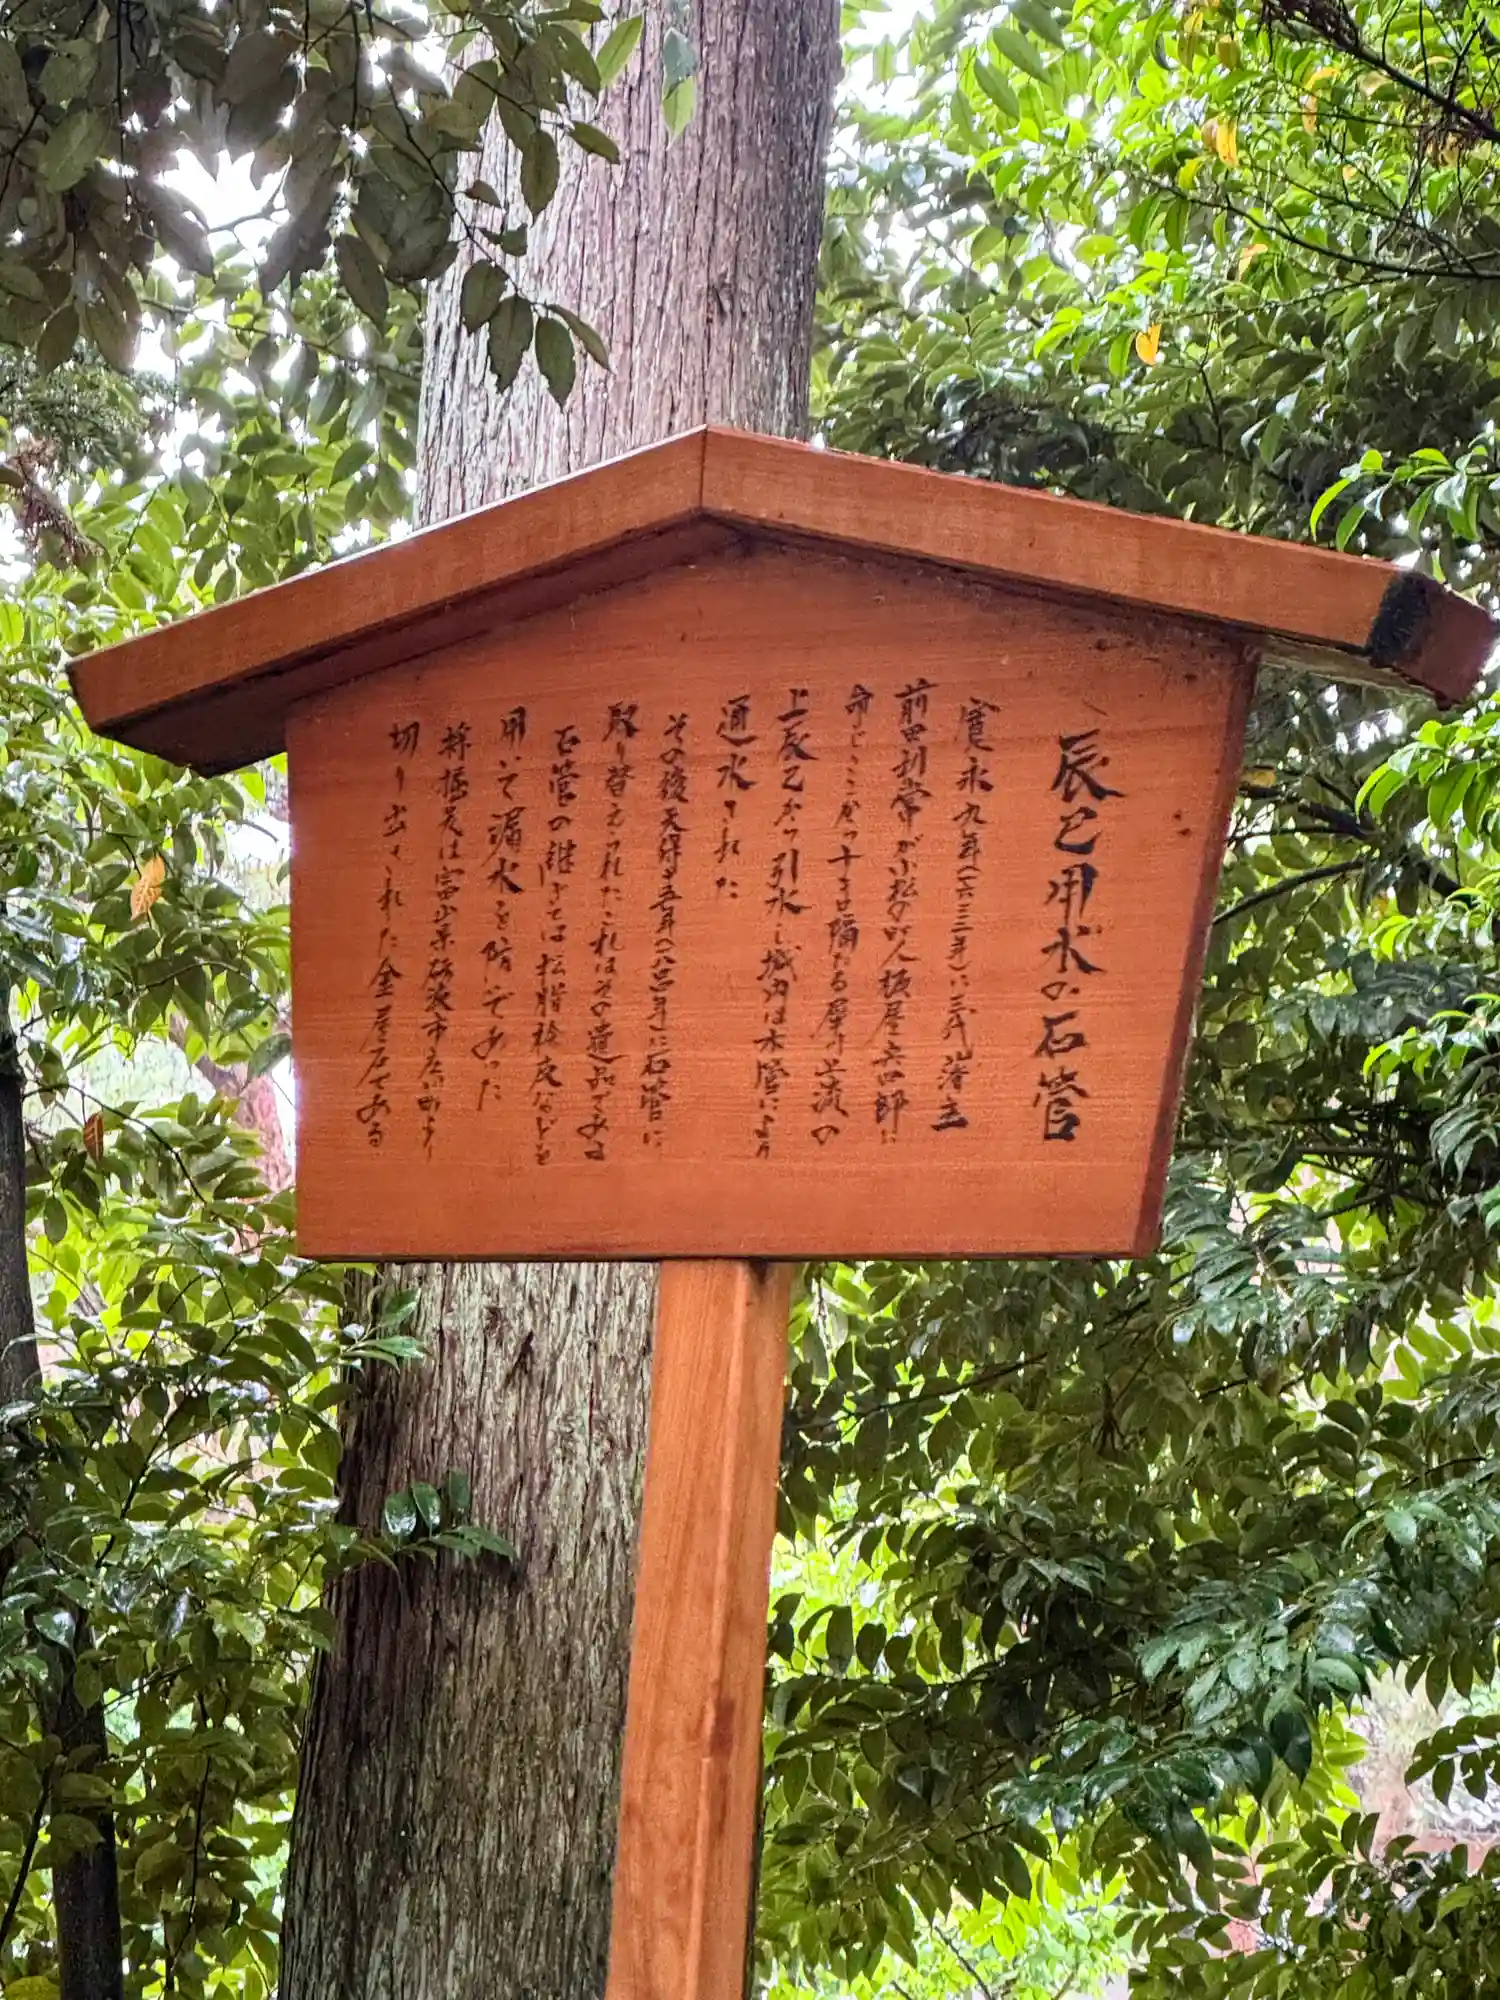 辰巳用水の石管
寛永九年(一六三二年)に三代藩主
前田利常が小松の町人板屋兵四郎に
命じここから十キロ隔たる犀川上流の
上辰巳から引水し城内は木管により
通水された
その後天保十五年(一八四四年)に石管に
取り替えられたこれはその遺品である
石管の継ぎては松脂桧皮などを
用いて漏水を防いであった
採掘先は富山県砺波市庄川町より
切り出された金屋石である